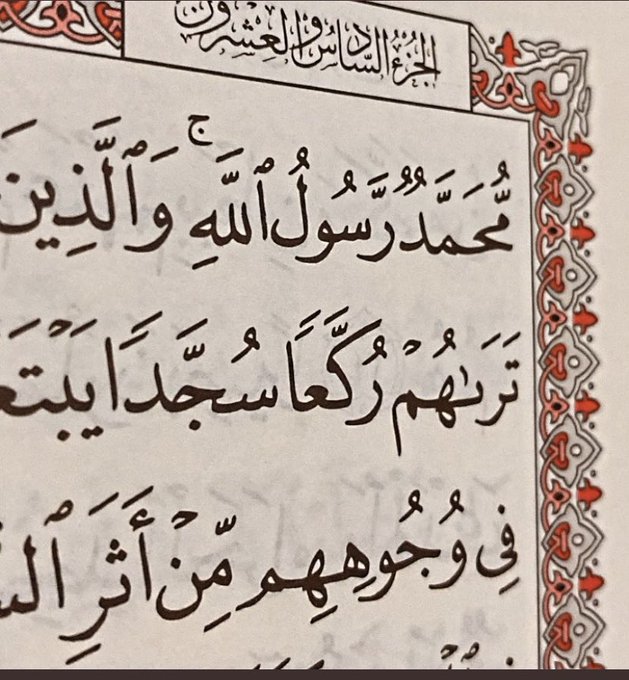 الجزء السادس والعشرون
مُّحَمَّدٌ رَّسُولُ ٱللَّهِ ۚ وَٱلَّذِينَ
تَرَىٰهُمْ رُكَّعًا سُجَّدًا
فِى وُجُوهِهِم مِّنْ أَثَرِ